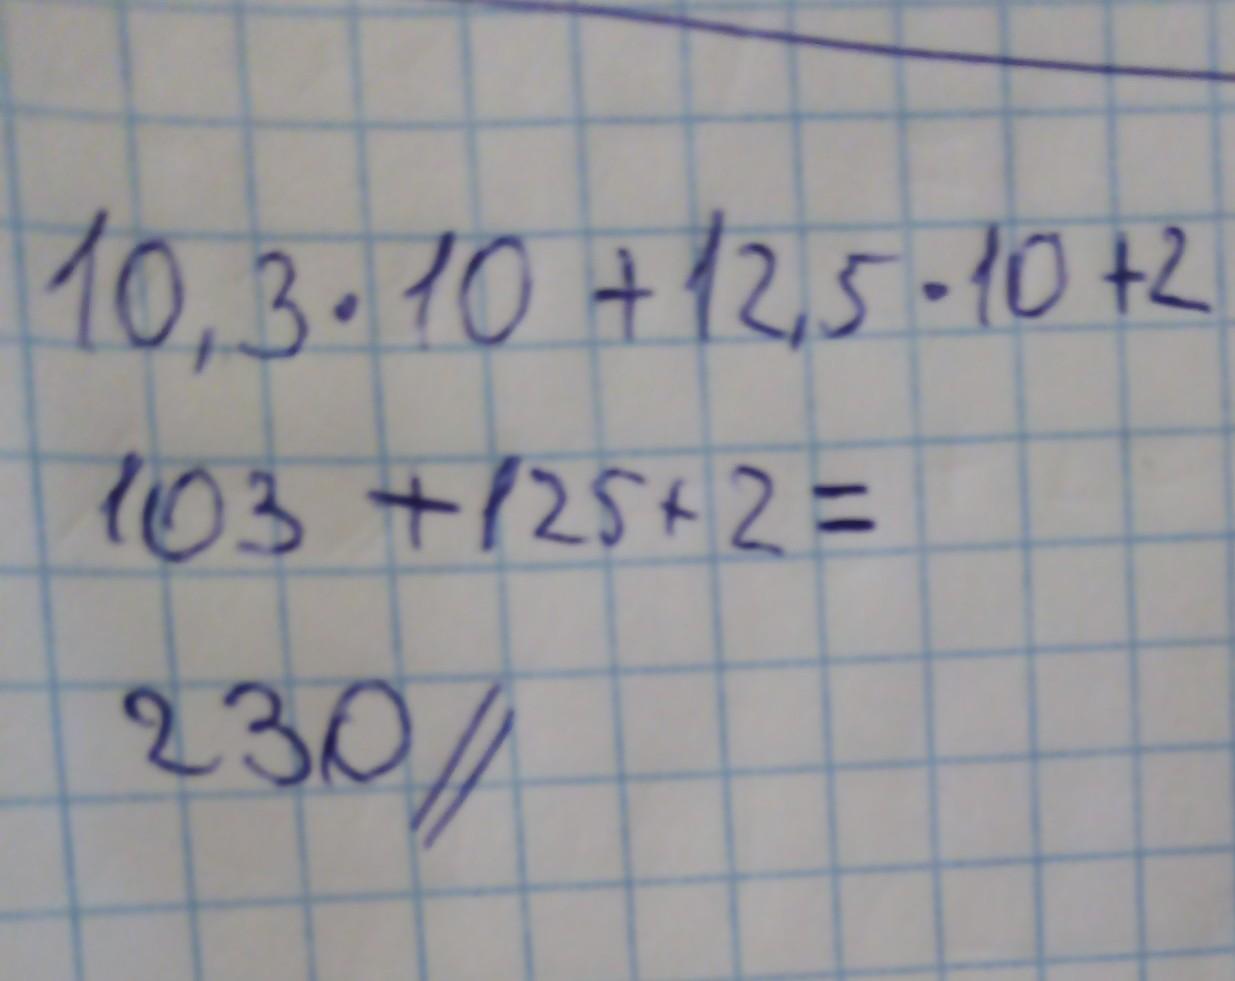 10,3·10 +12,5·10 +2
103 +125+2=
230//